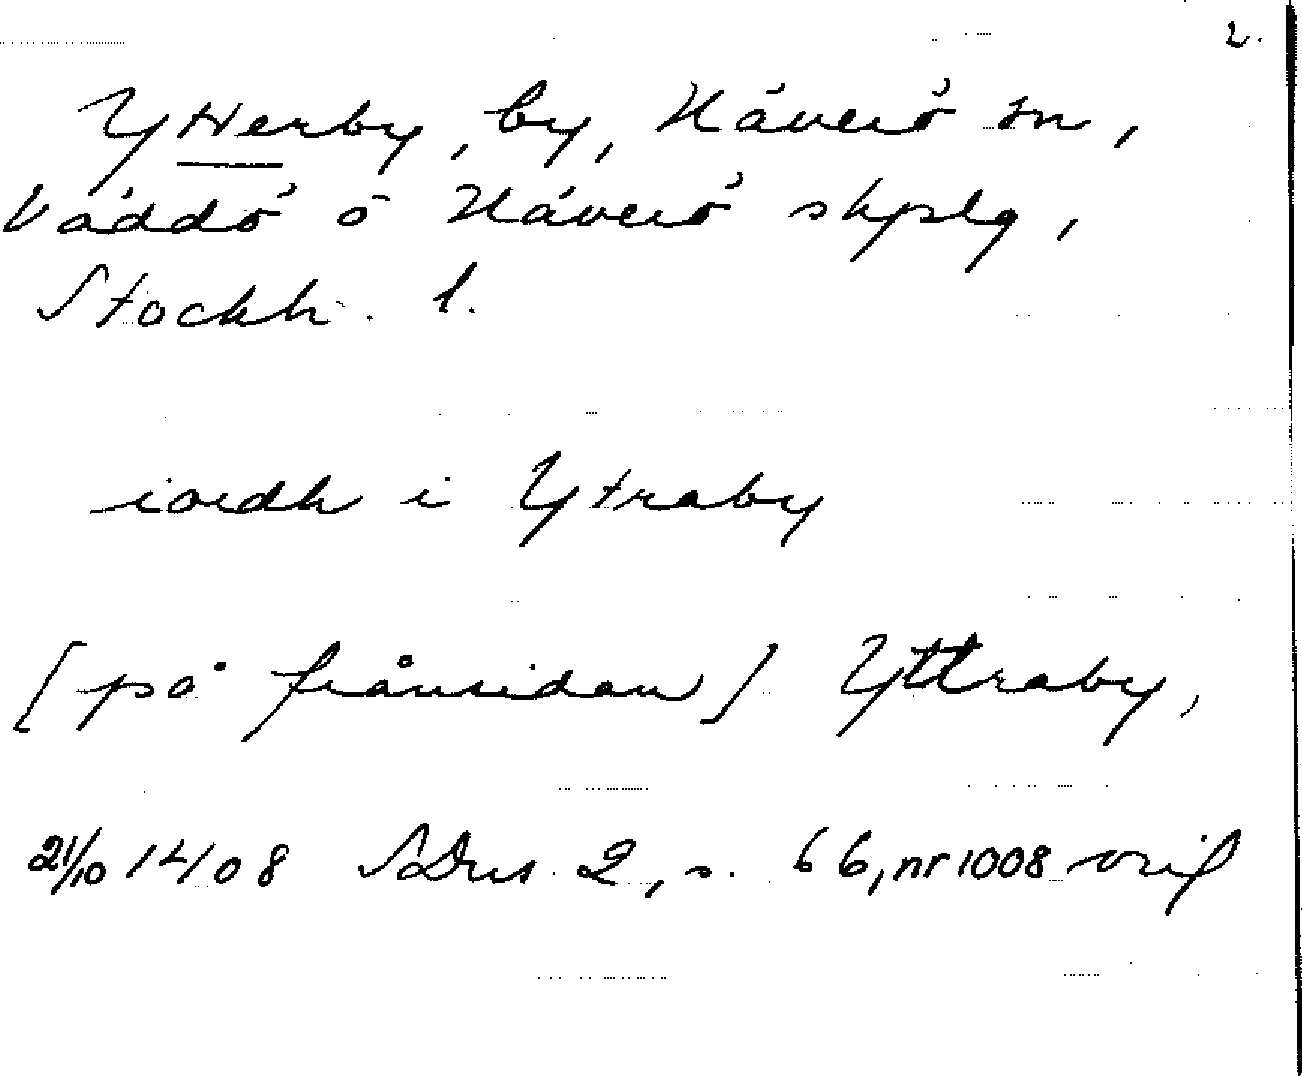 2.
Ytterby, by, Häverö sn,
Väddö o Häverö skplg,
Stockh. l.
iordh i Ytraby
[på frånsidan] Yttraby,
21/10 1408 SDns 2, s. 66, nr 1008 orig